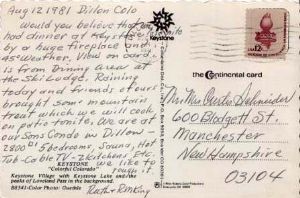 Aug 12 1981 Dillon Colo
Would you believe that on, white
had dinner at Keystone
by a huge fireplace and
45° weather. View on card
is from Dining area at
the Ski Lodge. Raining
today and friends of ours
brought some mountain
trout which we will cook
on patio tonite. We are at
our Sons Condo in Dillon-
2800 5 bedrooms, Sauna, Hot
Tub-Cable TV-2 kitchens, Etc.
"Colorful Colorado" We like to
Keystone Village with Keystone Lake and the rough it.
peaks of Loveland Pass in the background.
B8341-Color Photo:
Ruth + Ron King
Keystone
USA 12c
the Continental card
Mr Mrs Curtis Schneider
600 Blodgett St.
Manchester
New Hampshire
03104